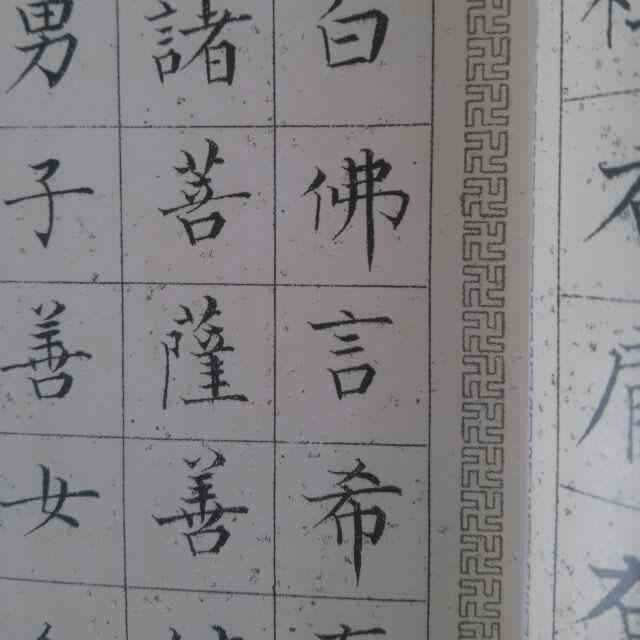 白佛言希
諸菩薩善
男子善女